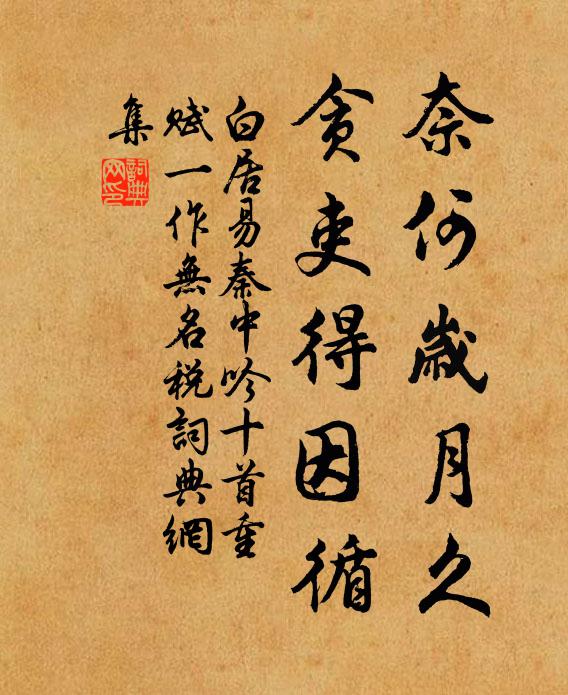 奈何歲月久
貪吏得因循
白居易秦中吟十首重
賦一作無名税詞典網
集
詞典網印